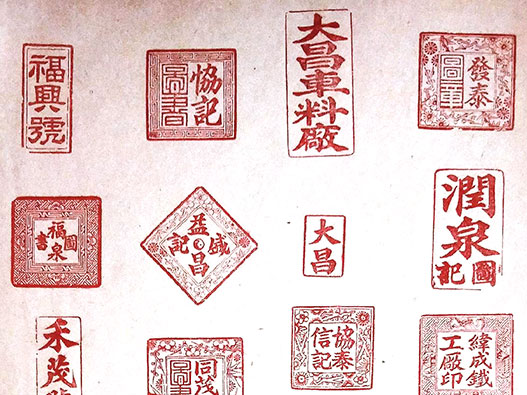 福興號
恊記
圖書
大昌車料廠
發泰
圖章
福泉
圖書
益昌
記
大昌
潤泉
圖記
禾茂
同茂
圖書
協泰
信記
緯成鐵
工廠印